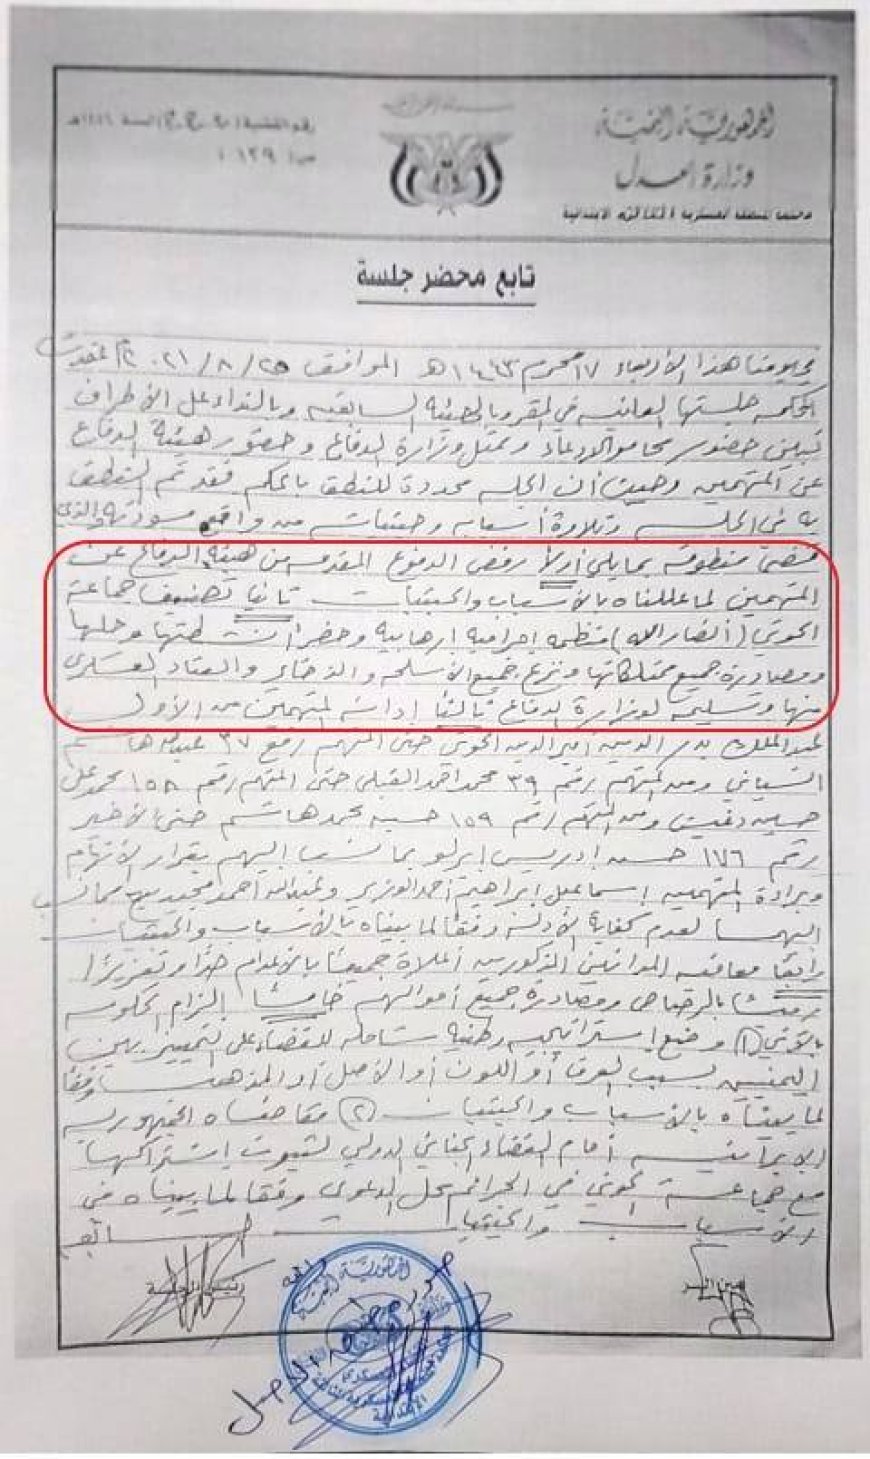 الجمهورية اليمنية
وزارة العدل
محكمة المنطقة العسكرية الثالثة الابتدائية
تابع محضر جلسة
في يومنا هذا الأربعاء ١٧ محرم ١٤٤٣هـ الموافق ٢٥/٨/٢٠٢١م عقدت
المحكمة جلستها العلنية في المقر وبالهيئة السابقة وبالنداء على الأطراف
تبين حضور محامو الادعاء وممثل وزارة الدفاع وحضور هيئة الدفاع
عن المتهمين وحيث أن الجلسة محددة للنطق بالحكم فقد تم النطق
به في الجلسة وتلاوة أسبابه وحيثياته من واقع مسودته والذي
قضى منطوقه بما يلي أولاً رفض الدفوع المقدمة من هيئة الدفاع عن
المتهمين لما عللناه بالأسباب والحيثيات ثانيا تصنيف جماعة
الحوثي (أنصار الله) منظمة إجرامية إرهابية وحضر أنشطتها وحلها
ومصادرة جميع ممتلكاتها ونزع جميع الأسلحة والذخائر والعتاد العسكري
منها وتسليمه لوزارة الدفاع ثالثا إدانة المتهمين من الأول
عبدالملك بدر الدين أمير الدين الحوثي حتى المتهم رقم ٣٧ عبدالله هاشم
السياني ومن المتهم رقم ٣٩ محمد احمد القبلي حتى المتهم رقم ١٥٨ محمد علي
حسين دغيش ومن المتهم رقم ١٥٩ حسين محمد هاشم حتى الأخير
رقم ١٧٦ حسن إدريس إيرلو بما نسب إليهم بقرار الاتهام
وبراءة المتهمين إسماعيل إبراهيم أحمد الوزير وعبدالله أحمد مجيديع مما نسب
إليهما لعدم كفاية الأدلة وفقاً لما بيناه بالأسباب والحيثيات
رابعًا معاقبة المدانين المذكورين أعلاه جميعًا بالإعدام حدًا وتعزيرًا
رميًا بالرصاص ومصادرة جميع أموالهم خامسًا إلزام الحكومة
بالآتي (١) وضع إستراتيجية وطنية شاملة للقضاء على التمييز بين
اليمنيين بسبب العرق أو اللون أو الأصل أو المذهب وفقًا
لما بيناه بالأسباب والحيثيات (٢) مقاضاه الجمهورية
الإيرانية أمام القضاء الجنائي الدولي لثبوت إشتراكها
مع جماعة الحوثي في الجرائم محل الدعوى وفقا لما بيناه في
الأسباب والحيثيات
أمين السر
رئيس الجلسة
صورة طبق الأصل